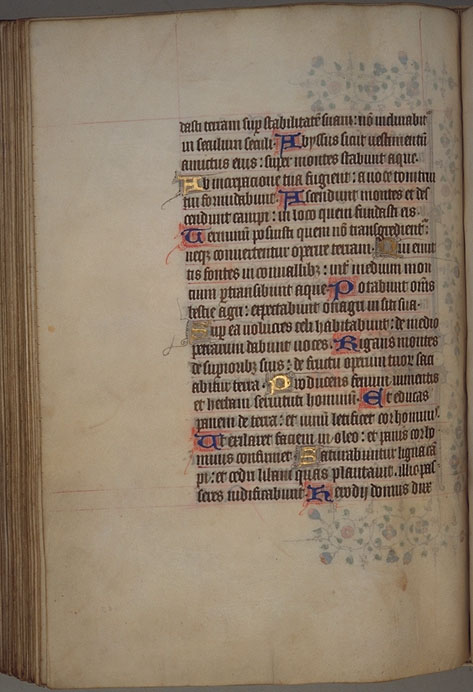 dasti terram sup stabilitatē suam: nō inclinabit
in seculum seculi. Abyssus sicut uestimentū
amictus eius: super montes stabunt aque.
Ab increpacione tua fugient: a uoce tonitrui
tui formidabunt. Ascendunt montes et des
cendunt campi: in loco quem fundasti eis.
Terminū posuisti quem nō transgredient':
neqȝ conuertentur operire terram. Qui emit
tis fontes in conuallibȝ: int' medium mon
tium ptransibunt aque. Potabunt om̄s
bestie agri: expectabunt onagri in siti sua.
Sup ea uolucres celi habitabunt: de medio
petrarum dabunt uoces. Rigans montes
de superioribȝ suis: de fructu operum tuor saci
abitur terra. Producens fenum iumentis
et herbam seruituti hominū. Et educas
panem de terra: et uinū letificet cor hominis.
Ut exilaret faciem in oleo: et panis cor ho
minis confirmet. Saturabuntur ligna cā
pi: et cedri libani quas plantauit. illic pas
seres nidificabunt. Herodij domus dux